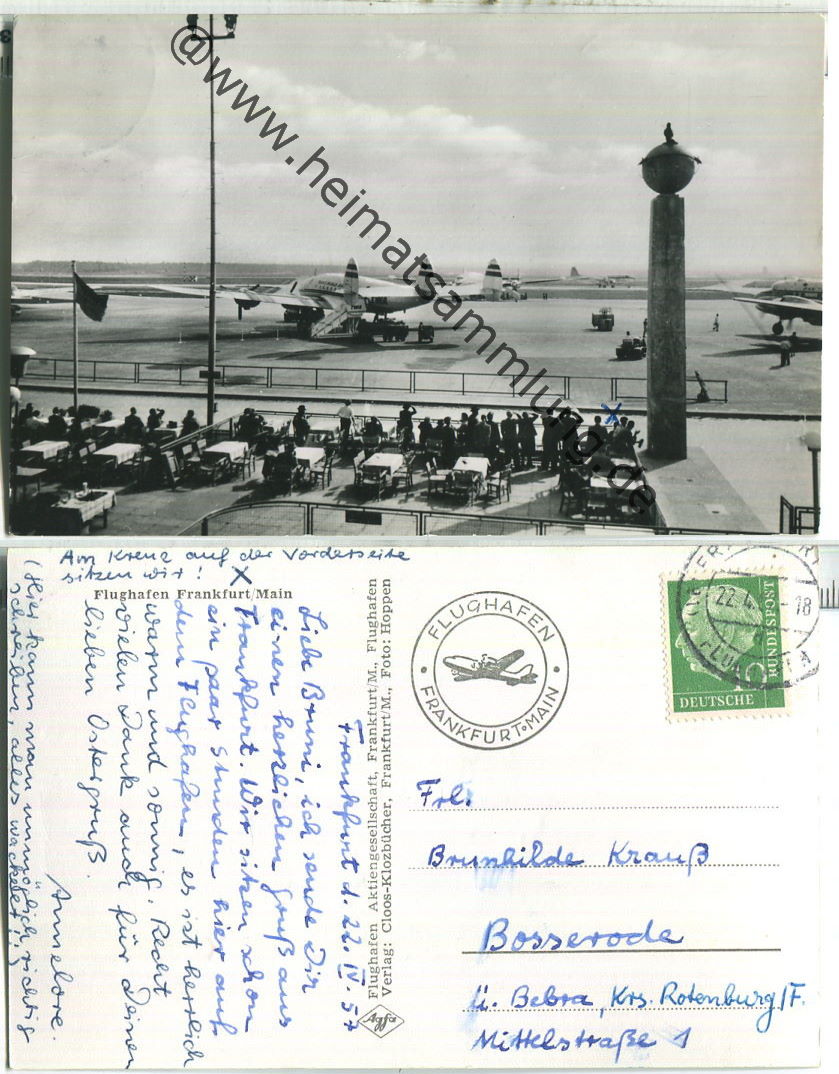 @www.heimatsammlung.de
Am Kreuz auf der Vorderseite
sitzen wir! X
Flughafen Frankfurt/Main
Frankfurt, d. 22. IV. 57
Liebe Bruni, ich sende Dir
einen herzlichen Gruß aus
Frankfurt. Wir sitzen schon
ein paar Stunden hier auf
dem Flughafen, es ist herrlich
warm und sonnig. Recht
vielen Dank auch für Deinen
lieben Ostergruß.
Annelore.
(Hier kann man unmöglich richtig
schreiben, alles wackelt!)
Flughafen Aktiengesellschaft, Frankfurt/M., Flughafen
Verlag: Cloos-Klozbücher, Frankfurt/M., Foto: Hoppen
Agfa
FLUGHAFEN
FRANKFURT-MAIN
22.4.
18
10
BUNDESPOST
DEUTSCHE
Frl.
Brunhilde Krauß
Bosserode
ü. Bebra, Krs. Rotenburg/F.
Mittelstraße 1